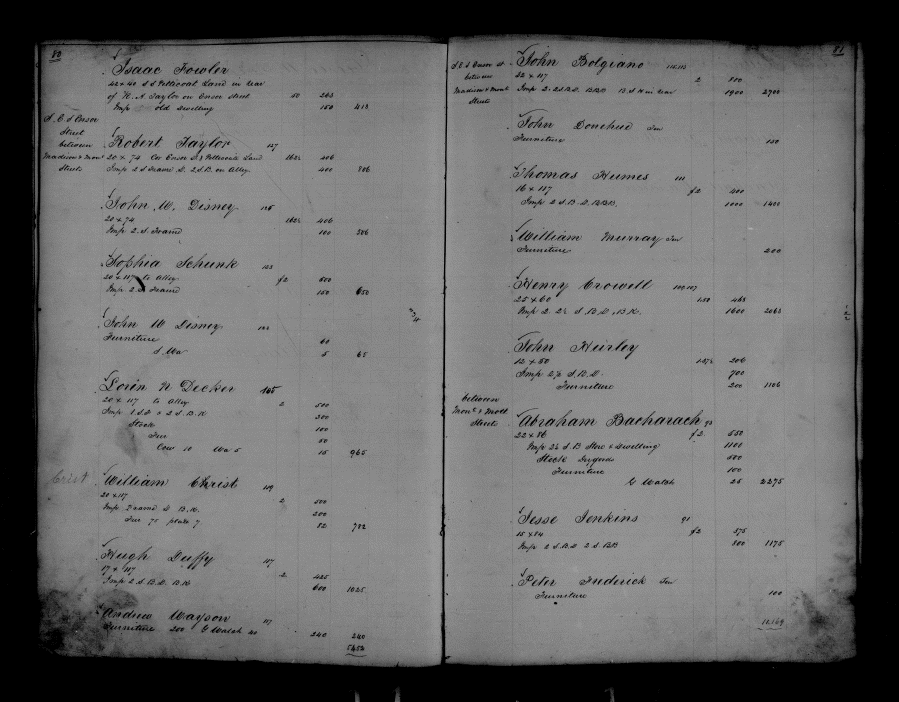 80
Isaac Fowler
42 x 40 S S Petticoat Land in rear
of N. A. Taylor on Ensor Street 50 263
Imp old Dwelling 150 413
S. E. S Ensor
Street
between
Madison & Mont
Streets
Robert Taylor 127
20 x 74 Cor Ensor St & Petticoat Land 162½ 406
Imp 2 S Frame D. 2 S.B. on Alley 400 806
John W. Disney 125
20 x 74 162½ 406
Imp 2. S. Frame 100 506
Sophia Schunk 123
20 x 117 to Alley f2 500
Imp 2 S Frame 150 650
John W Disney 125
Furniture 60
S Wa 5 65
Loren N Decker 105
20 x 117 to Alley 2 500
Imp 1 S D & 2 S. B. K 200
Stock 100
Fur 50
Cow 10 Wa 5 15 965
Crist
William Christ 119
20 x 117 2 500
Imp Frame D B. K. 200
Fur 75 plate 7 82 782
Hugh Duffy 117
17 x 117 2 425
Imp 2 S. B. D. B. K 600 1025
Andrew Mayson 117
Furniture 200 G Watch 40 240 240
5452
81
S. E. S Ensor St
between
Madison & Mont
Streets
John Bolgiano 115.113
32 x 117 2 800
Imp 2. 2 S. B. D. B.B.B B S H in rear 1900 2700
John Donehue Fur
Furniture 150
Thomas Humes 111
16 x 117 f2 400
Imp 2 S. B. D. B.B.B. 1000 1400
William Murray Fur
Furniture 200
Henry Crowell 109 107
25 x 60 1.50 468
Imp 2. 2½ S. B. D. B. K. 1600 2068
John Heirley
12 x 50 1.37½ 206
Imp 2½ S. B. D. 700
Furniture 200 1106
between
Mont & Mott
Streets
Abraham Bacharach 93
22 x 86 f2 550
Imp 2½ S. B Store & Dwelling 1100
Stock Drygoods 500
Furniture 100
G Watch 25 2275
Jesse Jenkins 91
15 x 84 f2 375
Imp 2 S. B. D 2 S. B.B 800 1175
Peter Frederick Fur
Furniture 100
11.169